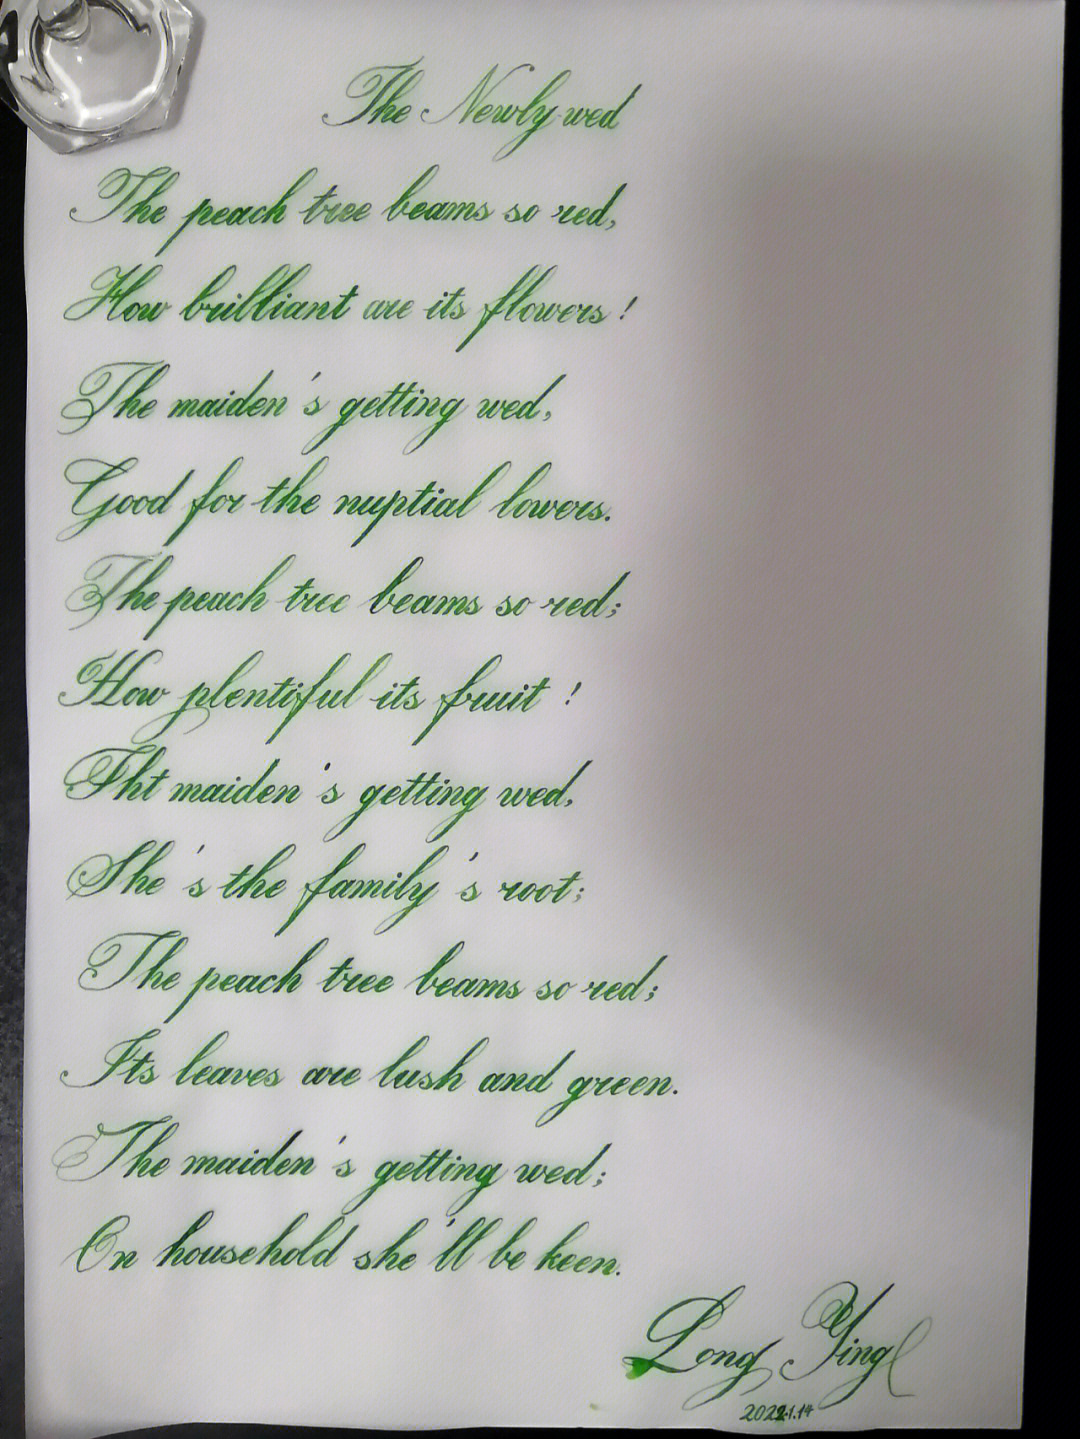 The Newly wed
The peach tree beams so red,
How brilliant are its flowers!
The maiden's getting wed,
Good for the nuptial lowers.
The peach tree beams so red;
How plentiful its fruit!
Tht maiden's getting wed,
She's the family's root;
The peach tree beams so red;
Its leaves are lush and green.
The maiden's getting wed;
On household she'll be keen.
Long Ying
2022.1.14